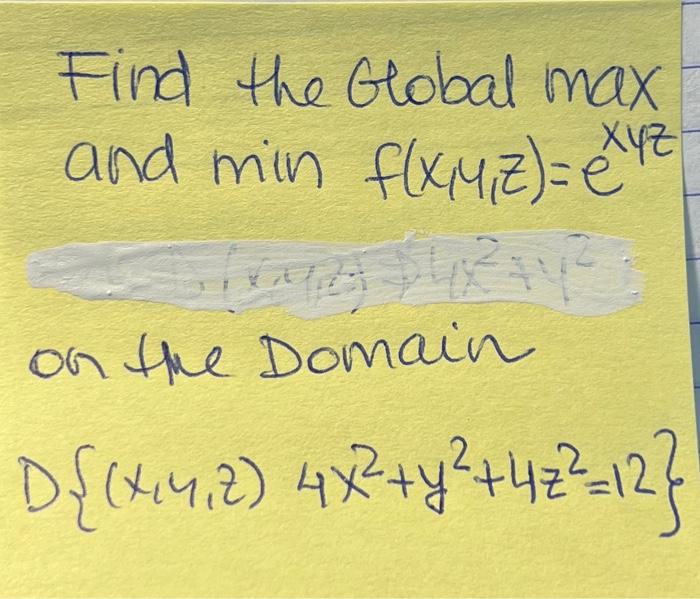 Find the Global max
and min f(x,y,z)=e^xyz
on the Domain
D{(x,y,z) 4x²+y²+4z²=12}